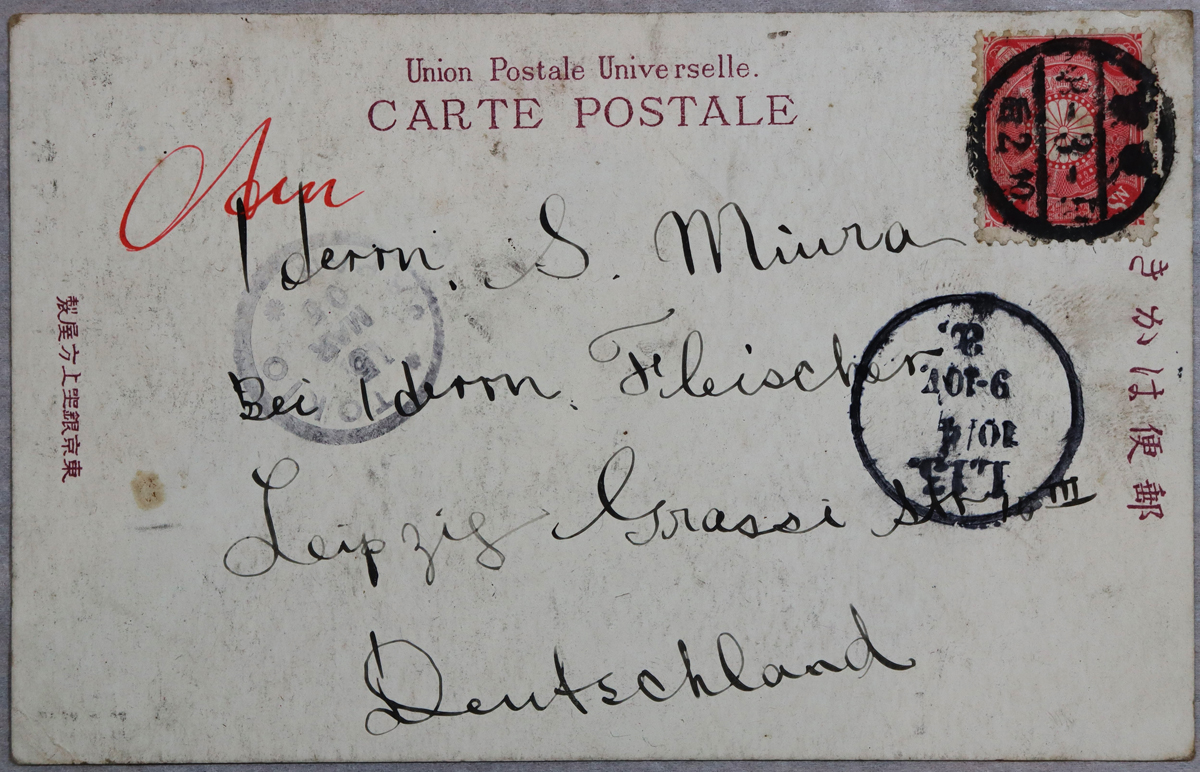 Union Postale Universelle.
CARTE POSTALE
Herrn. S. Miura
Bei Herrn. Fleischer
Leipzig Grassi Str. III
Deutschland
きかは便郵
東京銀座上方屋製
TOKIO
9-10V
10/4